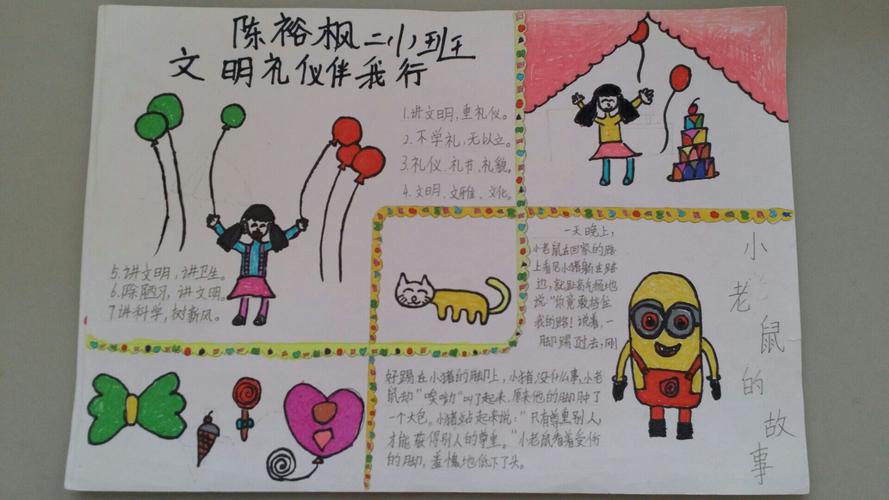 陈裕枫二(小)班
文明礼仪伴我行
1.讲文明,重礼仪。
2.不学礼,无以立。
3.礼仪、礼节、礼貌。
4.文明、文雅、文化。
5.讲文明,讲卫生。
6.除陋习,讲文明。
7讲科学,树新风。
小老鼠的故事
一天晚上,
小老鼠在回家的路
上看见小猪躺在路
边,就趾高气扬地
说:“你竟敢挡住
我的路!说着,一
脚踢过去,刚
好踢在小猪的脚上,小猪没什么事,小老
鼠却“唉哟”叫了起来,原来他的脚肿了
一个大包。小猪站起来说:“只有尊重别人,
才能获得别人的尊重。”小老鼠看着受伤
的脚,羞愧地低下了头。